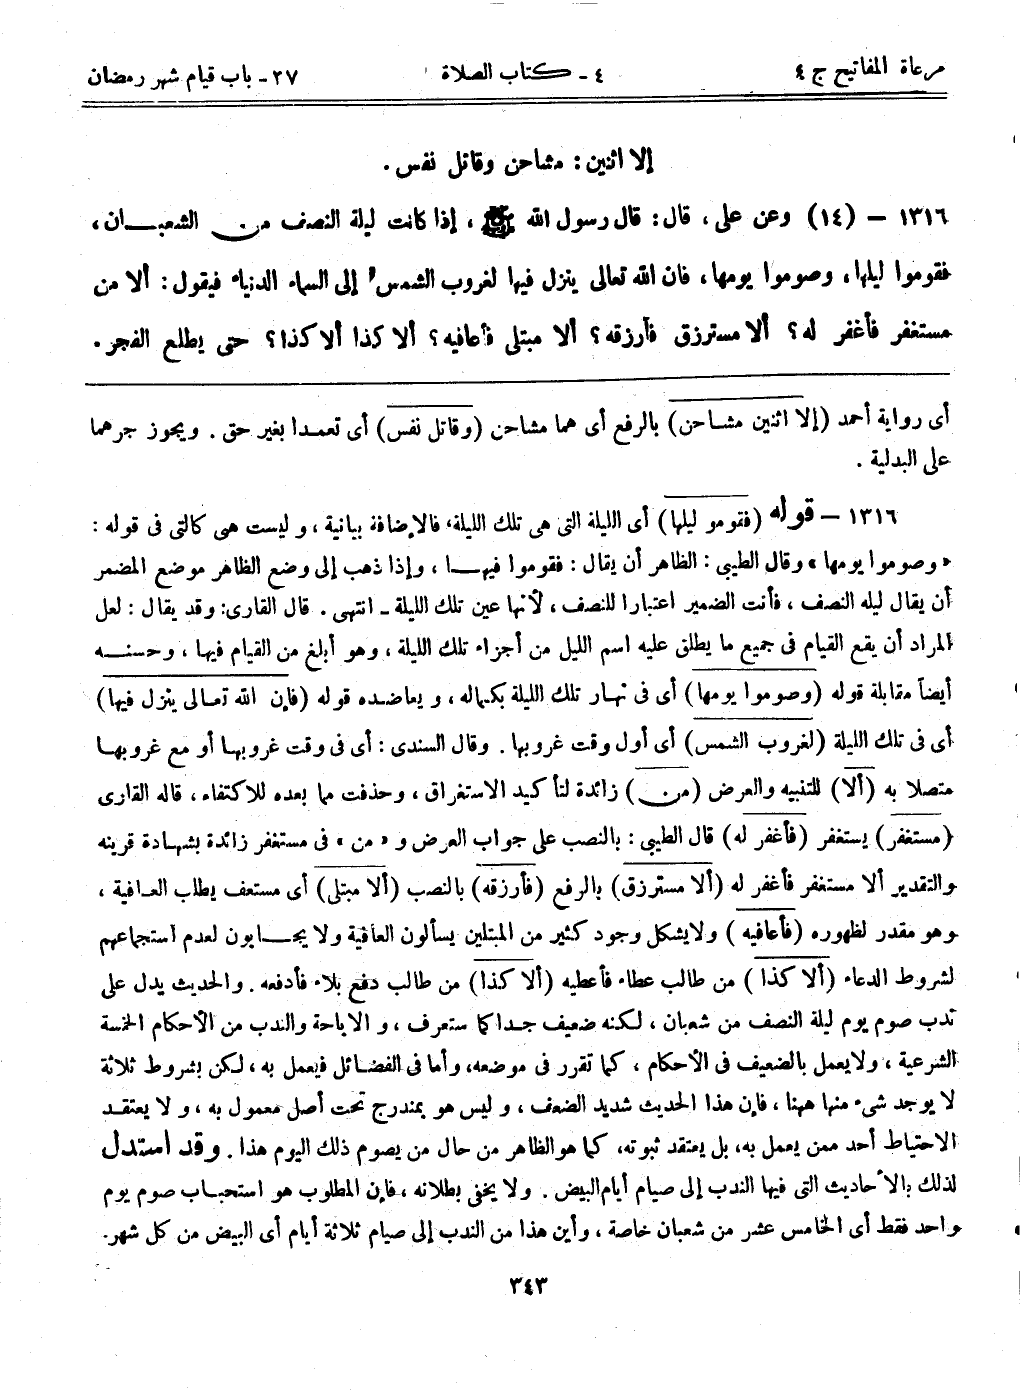 مرعاة المفاتيح ج ٤
٤ - كتاب الصلاة
٣٧ - باب قيام شهر رمضان
إلا اثنين: مشاحن وقاتل نفس.
١٣١٦ – (١٤) وعن على، قال: قال رسول الله ﷺ، إذا كانت ليلة النصف من الشعبان،
فقوموا ليلها، وصوموا يومها، فان الله تعالى ينزل فيها لغروب الشمس إلى السماء الدنيا، فيقول: ألا من
مستغفر فأغفر له؟ ألا مسترزق فأرزقه؟ ألا مبتلى فأعافيه؟ ألا كذا ألا كذا؟ حتى يطلع الفجر.
أى رواية أحمد (إلا اثنين مشاحن) بالرفع أى هما مشاحن (وقاتل نفس) أى تعمدا بغير حق. ويجوز جرهما
على البدلية.
١٣١٦ – قوله (فقومو ليلها) أى الليلة التى هى تلك الليلة، فالإضافة بيانية، و ليست هى كالتى فى قوله:
«وصوموا يومها» وقال الطيبى: الظاهر أن يقال: فقوموا فيها، وإذا ذهب إلى وضع الظاهر موضع المضمر
أن يقال ليله النصف، فأنت الضمير اعتبارا للنصف، لأنها عين تلك الليلة - انتهى. قال القارى: وقد يقال: لعل
المراد أن يقع القيام فى جميع ما يطلق عليه اسم الليل من أجزاء تلك الليلة، وهو أبلغ من القيام فيها، وحسنه
أيضاً مقابلة قوله (وصوموا يومها) أى فى نهار تلك الليلة بكماله، و يعاضده قوله (فإن الله تعالى ينزل فيها)
أى فى تلك الليلة (لغروب الشمس) أى أول وقت غروبها. وقال السندى: أى فى وقت غروبها أو مع غروبها
متصلا به (ألا) للتنبيه والعرض (من) زائدة لتأكيد الاستغراق، وحذفت مما بعده للاكتفاء، قاله القارى
(مستغفر) يستغفر (فأغفر له) قال الطيبى: بالنصب على جواب العرض و «من» فى مستغفر زائدة بشهادة قرينه
والتقدير ألا مستغفر فأغفر له (ألا مسترزق) بالرفع (فأرزقه) بالنصب (ألا مبتلى) أى مستعف يطلب العافية،
وهو مقدر لظهوره (فأعافيه) ولا يشكل وجود كثير من المبتلين يسألون العافية ولا يجابون لعدم استجماعهم
لشروط الدعاء (ألا كذا) من طالب عطاء فأعطيه (ألا كذا) من طالب دفع بلاء فأدفعه. والحديث يدل على
ندب صوم يوم ليلة النصف من شعبان، لكنه ضعيف جدا كما ستعرف، و الاباحة والندب من الأحكام الخمسة
الشرعية، ولا يعمل بالضعيف فى الأحكام، كما تقرر فى موضعه، وأما فى الفضائل فيعمل به، لكن بشروط ثلاثة
لا يوجد شىء منها ههنا، فإن هذا الحديث شديد الضعف، و ليس هو بمندرج تحت أصل معمول به، و لا يعتقد
الاحتياط أحد ممن يعمل به، بل يعتقد ثبوته، كما هو الظاهر من حال من يصوم ذلك اليوم هذا. وقد استدل
لذلك بالأحاديث التى فيها الندب إلى صيام أيام البيض. ولا يخفى بطلانه، فإن المطلوب هو استحباب صوم يوم
واحد فقط أى الخامس عشر من شعبان خاصة، وأين هذا من الندب إلى صيام ثلاثة أيام أى البيض من كل شهر.
٣٤٣